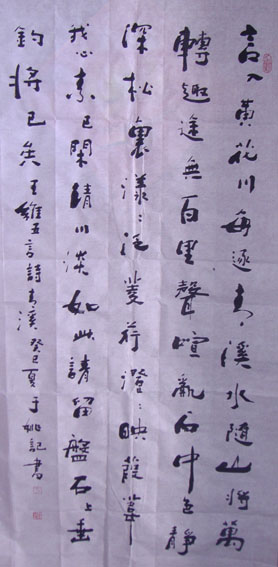 言入黄花川每逐青溪水隨山將萬
轉趣途無百里聲喧亂石中色靜
深松裏漾〻泛菱荇澄〻映葭葦
我心素已閑清川淡如此請留盤石上垂
釣將已矣王維五言詩青溪癸巳夏于姚記書